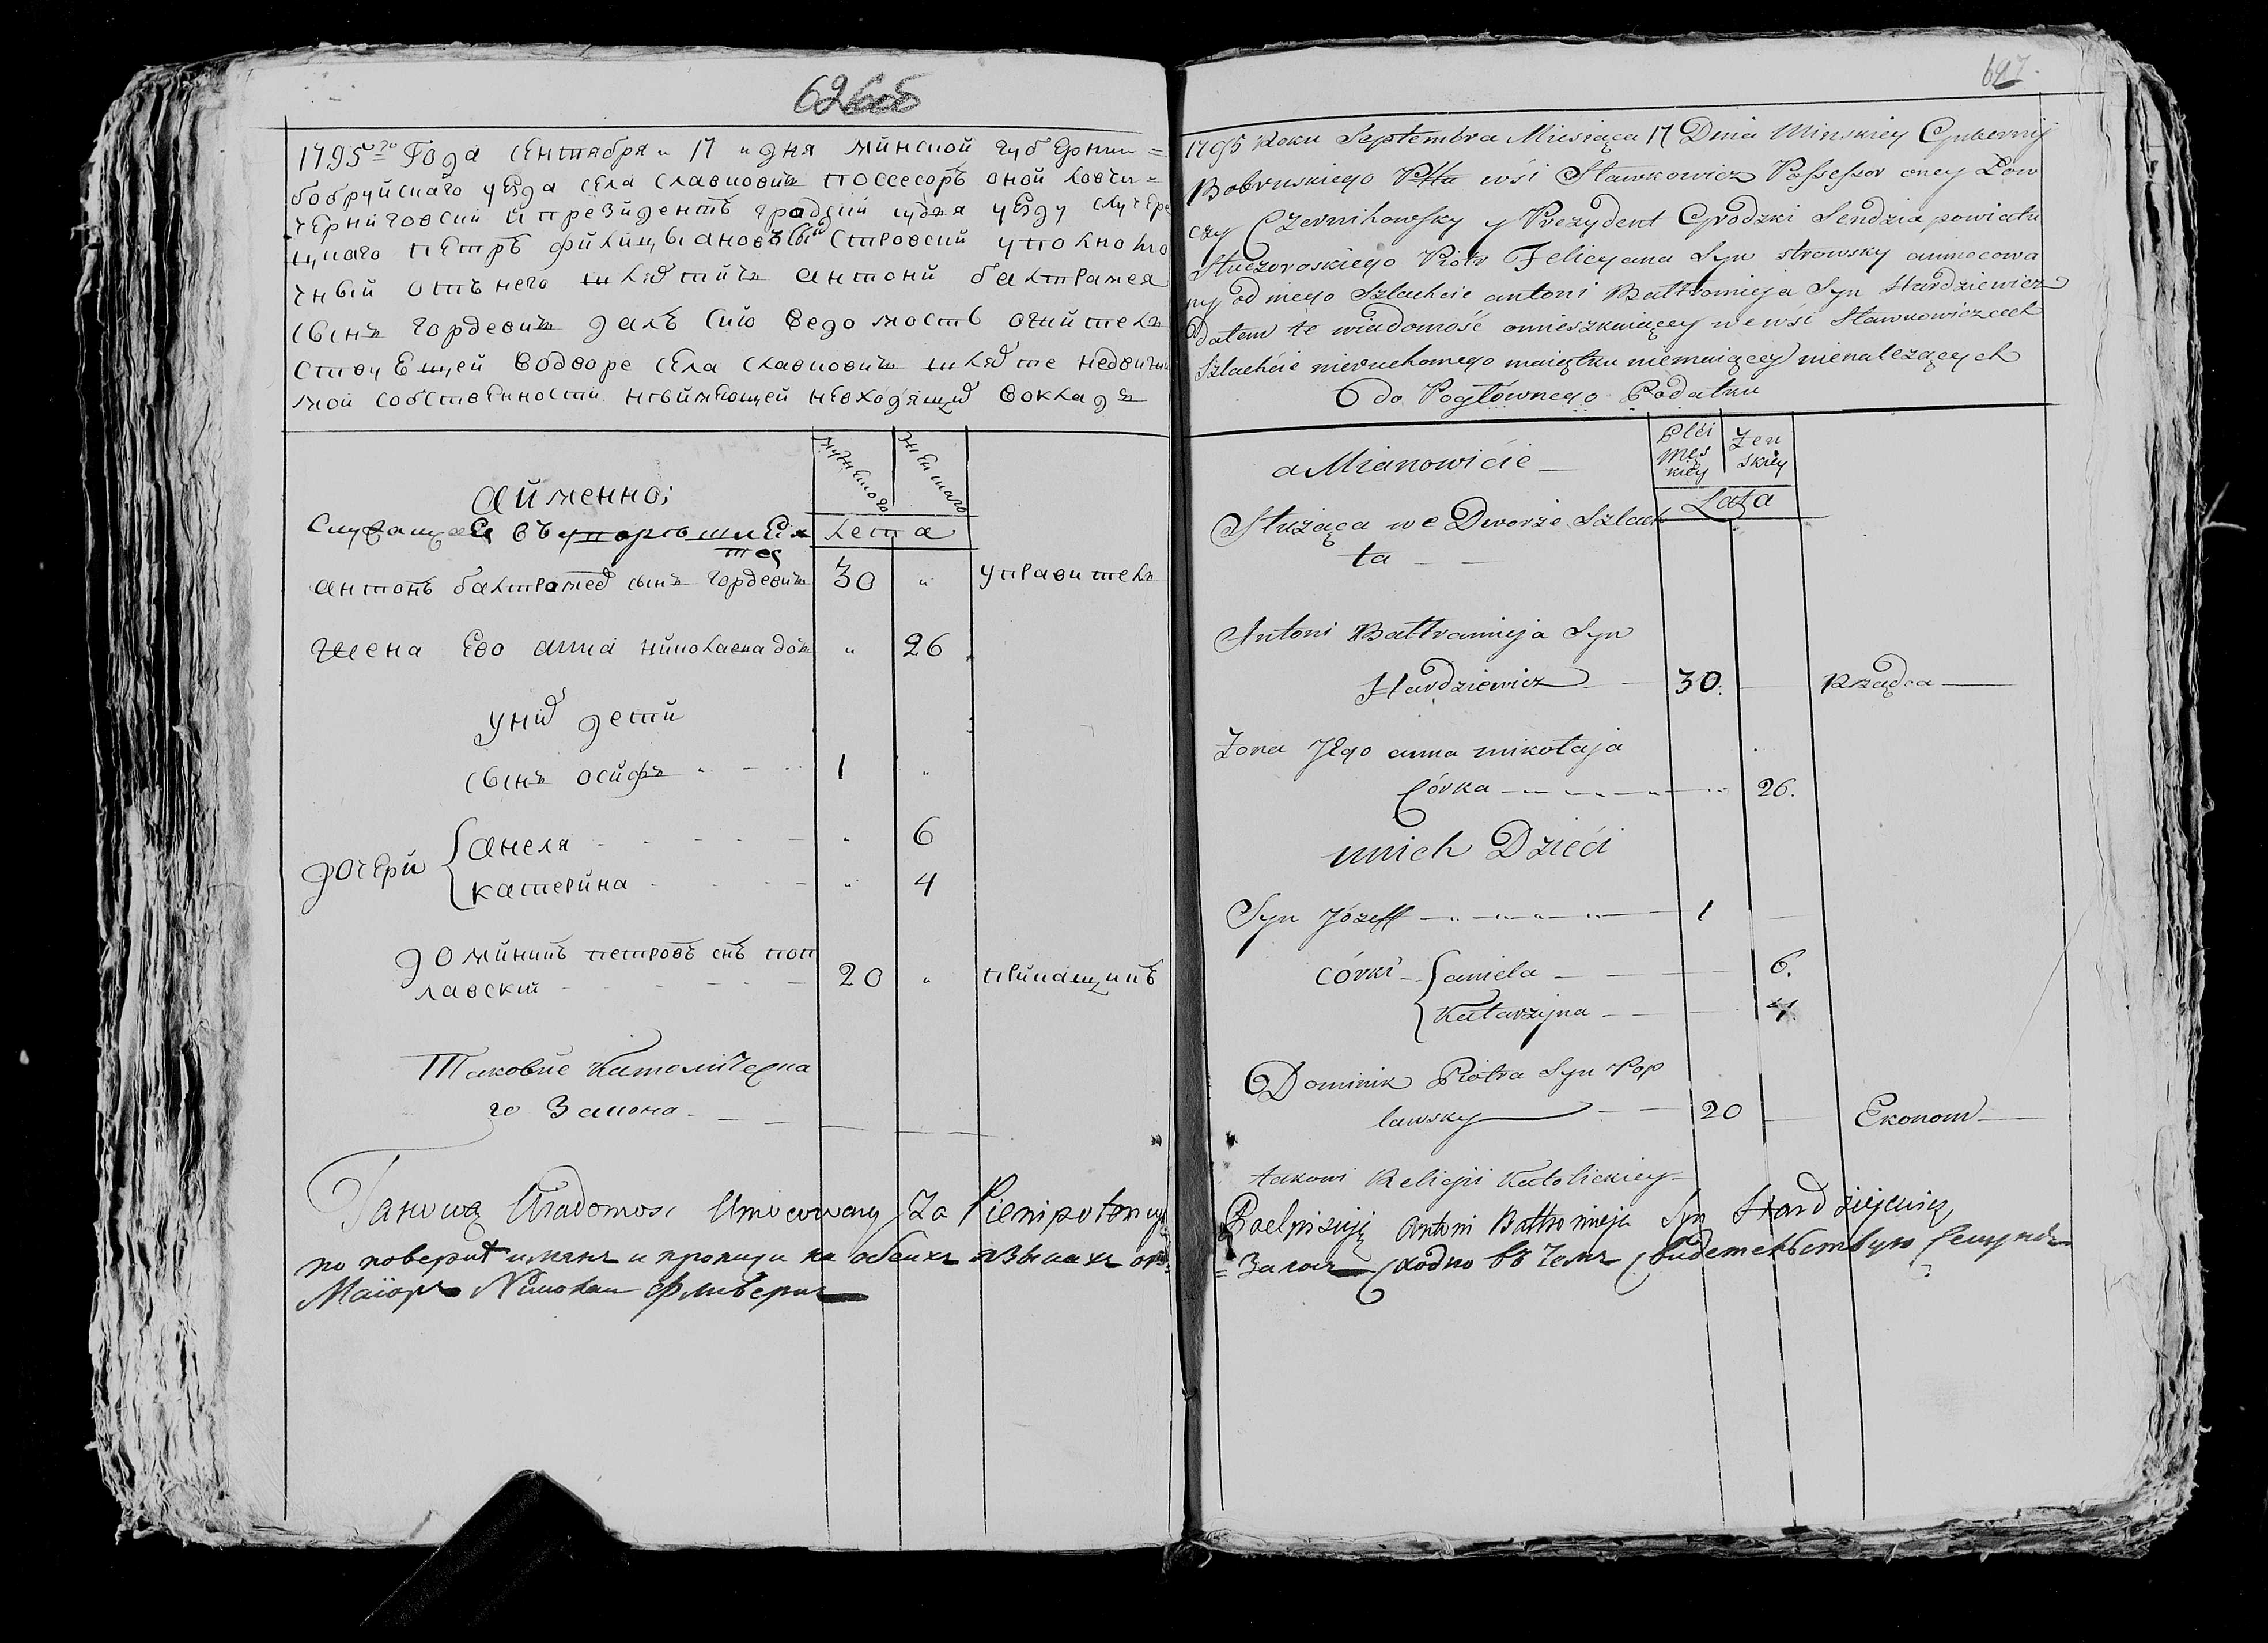 626об
1795го Года сентября „ 17 „ дня минской губернии =
бобруйскаго уезда села славковичь поссесоръ оной ловчи =
черниговский и президентъ градский судья уезду случере
цкаго петръ филициановъ сынъ стровский уполномо
чный отъ него шляхтичь антони балтрамея
сынъ гордевичь далъ сию ведомость о жительствующей в дворе села славковичь шляхте недвижи
мой собственности неимеющей невходящих воклад
а именно;
мужескаго
женскаго
Служащая въ дворе шляхта
лета
антонъ балтрамея сынъ гордевичь 30 „ управитель
жена Ево анна николаева дочь „ 26
у них дети
сынъ осифъ 1 „
дочери
анеля „ 6
катерина „ 4
доминикъ петровъ снъ поп
лавский 20 „ прикащикъ
Таковые Католическа
го Закона
Takową Wiadomosc Umocowany Za Plenipotencyą
по поверке имянъ и прописи на обеихъ языкахъ
Маіоръ Николай
627.
1795 Roku Septembra Miesiąca 17 Dnia Minskiey Gubernij
Bobruskiego Pttu wśi Sławkowicz Possessor oney Łow
czy Czernihowsky y Prezydent Grodzki Sendzia powiatu
Słuczoroskiego Piotr Felicyana Syn strowsky aumocowa
ny od niego Szlachcic antoni Bałtromieja Syn Hardziewicz
dałem te wiadomość omieszkaiącey we wsi Sławkowiczach
Szlachcie nieruchomego maiątku niemaiącey nienależących
do Pogłównego Podatku
a Mianowićie
Płći męskiey
Żenskiey
Lata
Służąca we Dworze Szlach
ta
Antoni Bałtramieja Syn
Hardziewicz 30. Rządca
Żona Jego anna mikołaja
Córka 26.
unich Dzieći
Syn Józeff 1
córki
aniela 6.
Katarzyna 4
Dominik Piotra Syn Pop
lawsky 20 Ekonom
takowi Religii Katolickiey
Podpisuję Antoni Bałtromieja Syn Hardziejewicz
сходно въ чемъ свидетельствую секундъ